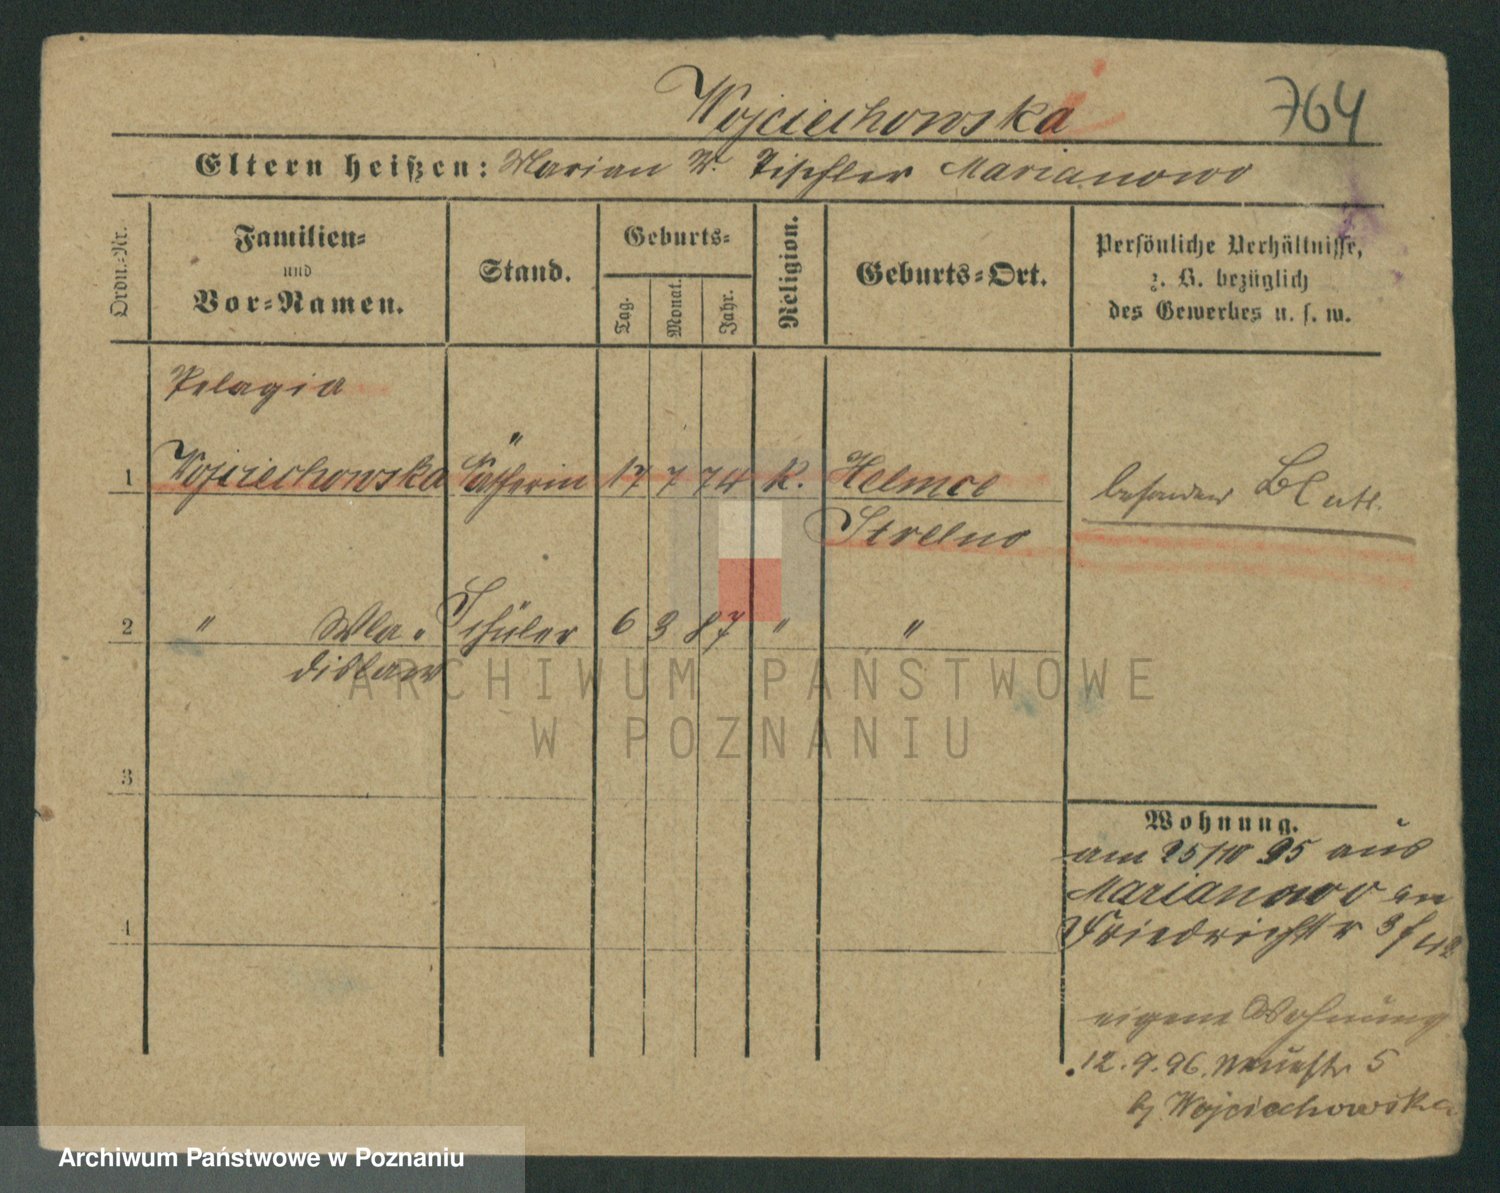 Wojciechowska
764
Eltern heißen: Marian W. Tischler Marianowo
Ordn.-Nr.
Familien-
und
Vor-Namen.
Stand.
Geburts-
Tag.
Monat.
Jahr.
Religion.
Geburts-Ort.
Persönliche Verhältnisse,
z. B. bezüglich
des Gewerbes u. s. w.
Pelagia
1 Wojciechowska " 17 7 74 K. Helmce
besonder Blatt.
Strelno
2 " Wla- Schüler 6 3 87 " "
dislaw
3
4
Wohnung.
am 25/10 95 aus
Marianowo an
Friedrichstr 3
eigene Wohnung
12.9.96. Neuestr 5
bj Wojciechowska
ARCHIWUM PAŃSTWOWE
W POZNANIU
Archiwum Państwowe w Poznaniu